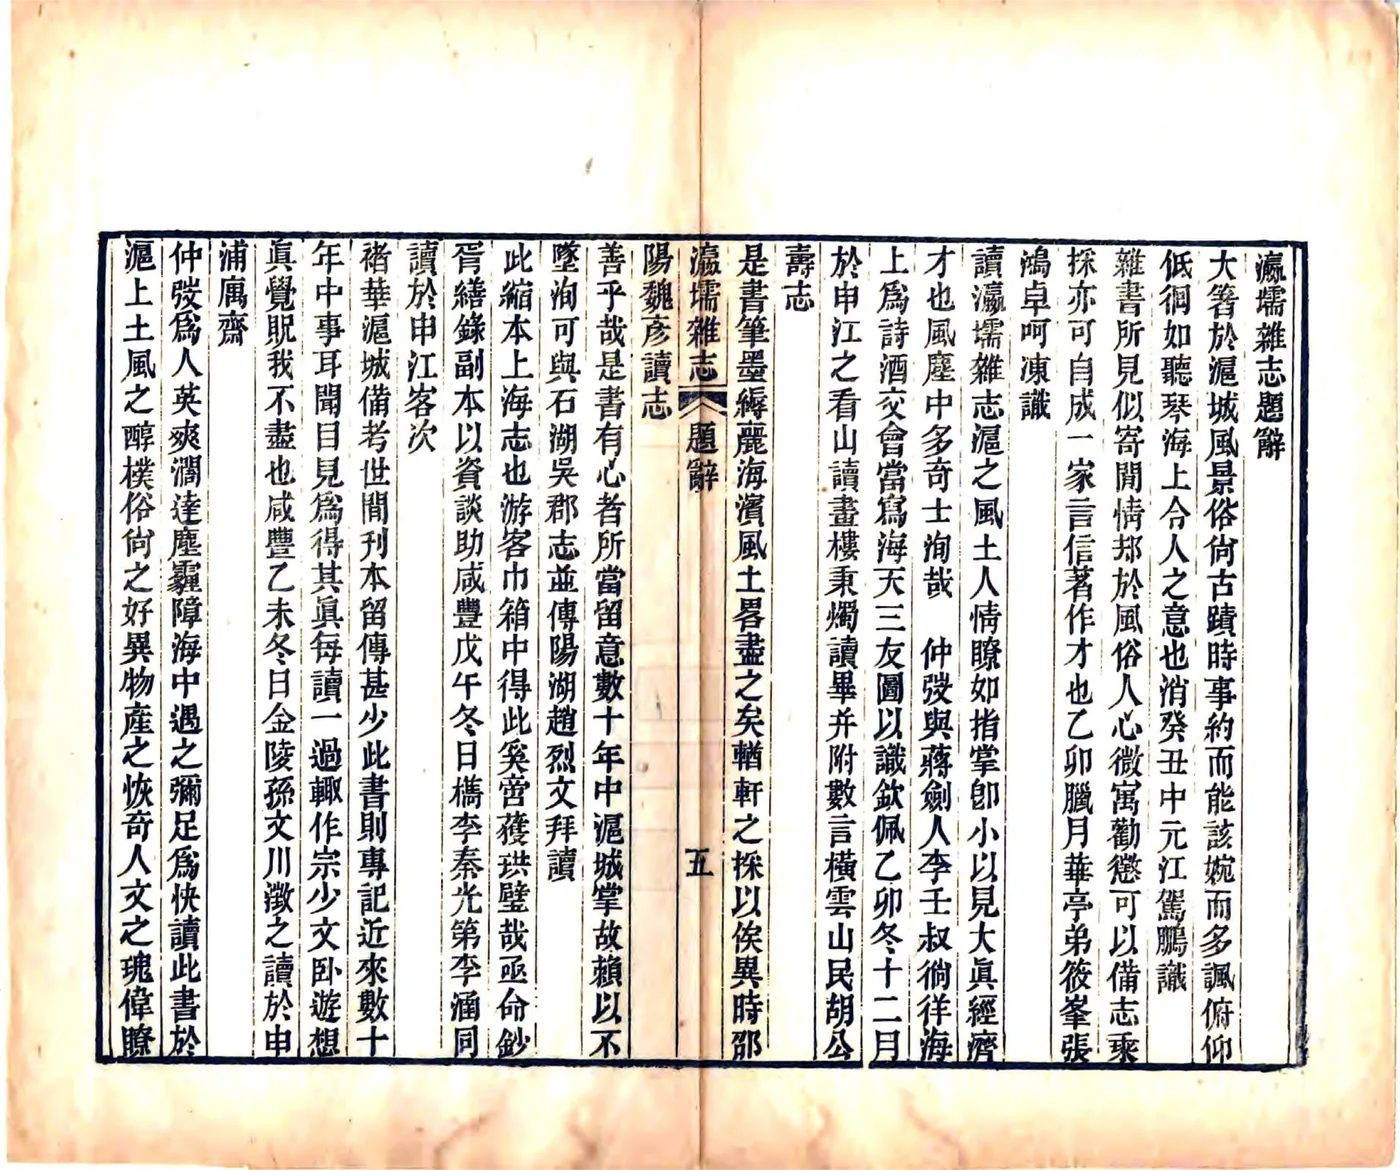 瀛壖雜志題辭
大箸於滬城風景俗尙古蹟時事約而能該婉而多諷俯仰
低徊如聽琴海上令人之意也消癸丑中元江駕鵬識
雜書所見似寄閒情邦於風俗人心微寓勸懲可以備志乘
採亦可自成一家言信著作才也乙卯臘月華亭弟筱峯張
鴻卓呵凍識
讀瀛壖雜志滬之風土人情瞭如指掌卽小以見大眞經濟
才也風塵中多奇士洵哉　仲弢與蔣劍人李壬叔徜徉海
上爲詩酒交會當寫海天三友圖以識欽佩乙卯冬十二月
於申江之看山讀畫樓秉燭讀畢并附數言橫雲山民胡公
壽志
是書筆墨縟麗海濱風土畧盡之矣輶軒之採以俟異時邵
瀛壖雜志　題辭　五
陽魏彥讀志
善乎哉是書有心者所當留意數十年中滬城掌故賴以不
墜洵可與石湖吳郡志並傳陽湖趙烈文拜讀
此縮本上海志也游客巾箱中得此奚啻獲珙璧哉亟命鈔
胥繕錄副本以資談助咸豐戊午冬日檇李秦光第李涵同
讀於申江客次
褚華滬城備考世閒刊本留傳甚少此書則專記近來數十
年中事耳聞目見爲得其眞每讀一過輒作宗少文卧遊想
眞覺貺我不盡也咸豐乙未冬日金陵孫文川澂之讀於申
浦厲齋
仲弢爲人英爽濶達塵霾障海中遇之彌足爲快讀此書於
滬上土風之醇樸俗尙之好異物產之恢奇人文之瑰偉瞭